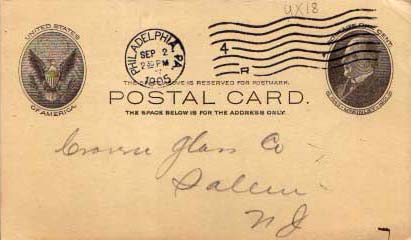 UX18
UNITED STATES
OF AMERICA
PHILADELPHIA, PA.
SEP 2
PM
1905
4
R
THE SPACE ABOVE IS RESERVED FOR POSTMARK.
POSTAL CARD.
THE SPACE BELOW IS FOR THE ADDRESS ONLY.
Crown Glass Co
Salem
NJ